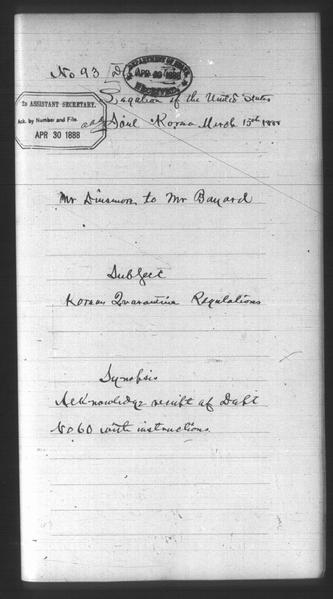 No 93
DEPARTMENT OF STATE
APR 30 1888
RECEIVED
Legation of the United States
2D ASSISTANT SECRETARY.
Ack. by Number and File.
APR 30 1888
Söul Korea March 15th 1888
Mr Dinsmore to Mr Bayard
Subject
Korean Quarantine Regulations
Synopsis
Acknowledge receipt of Dept
No 60 with instructions.